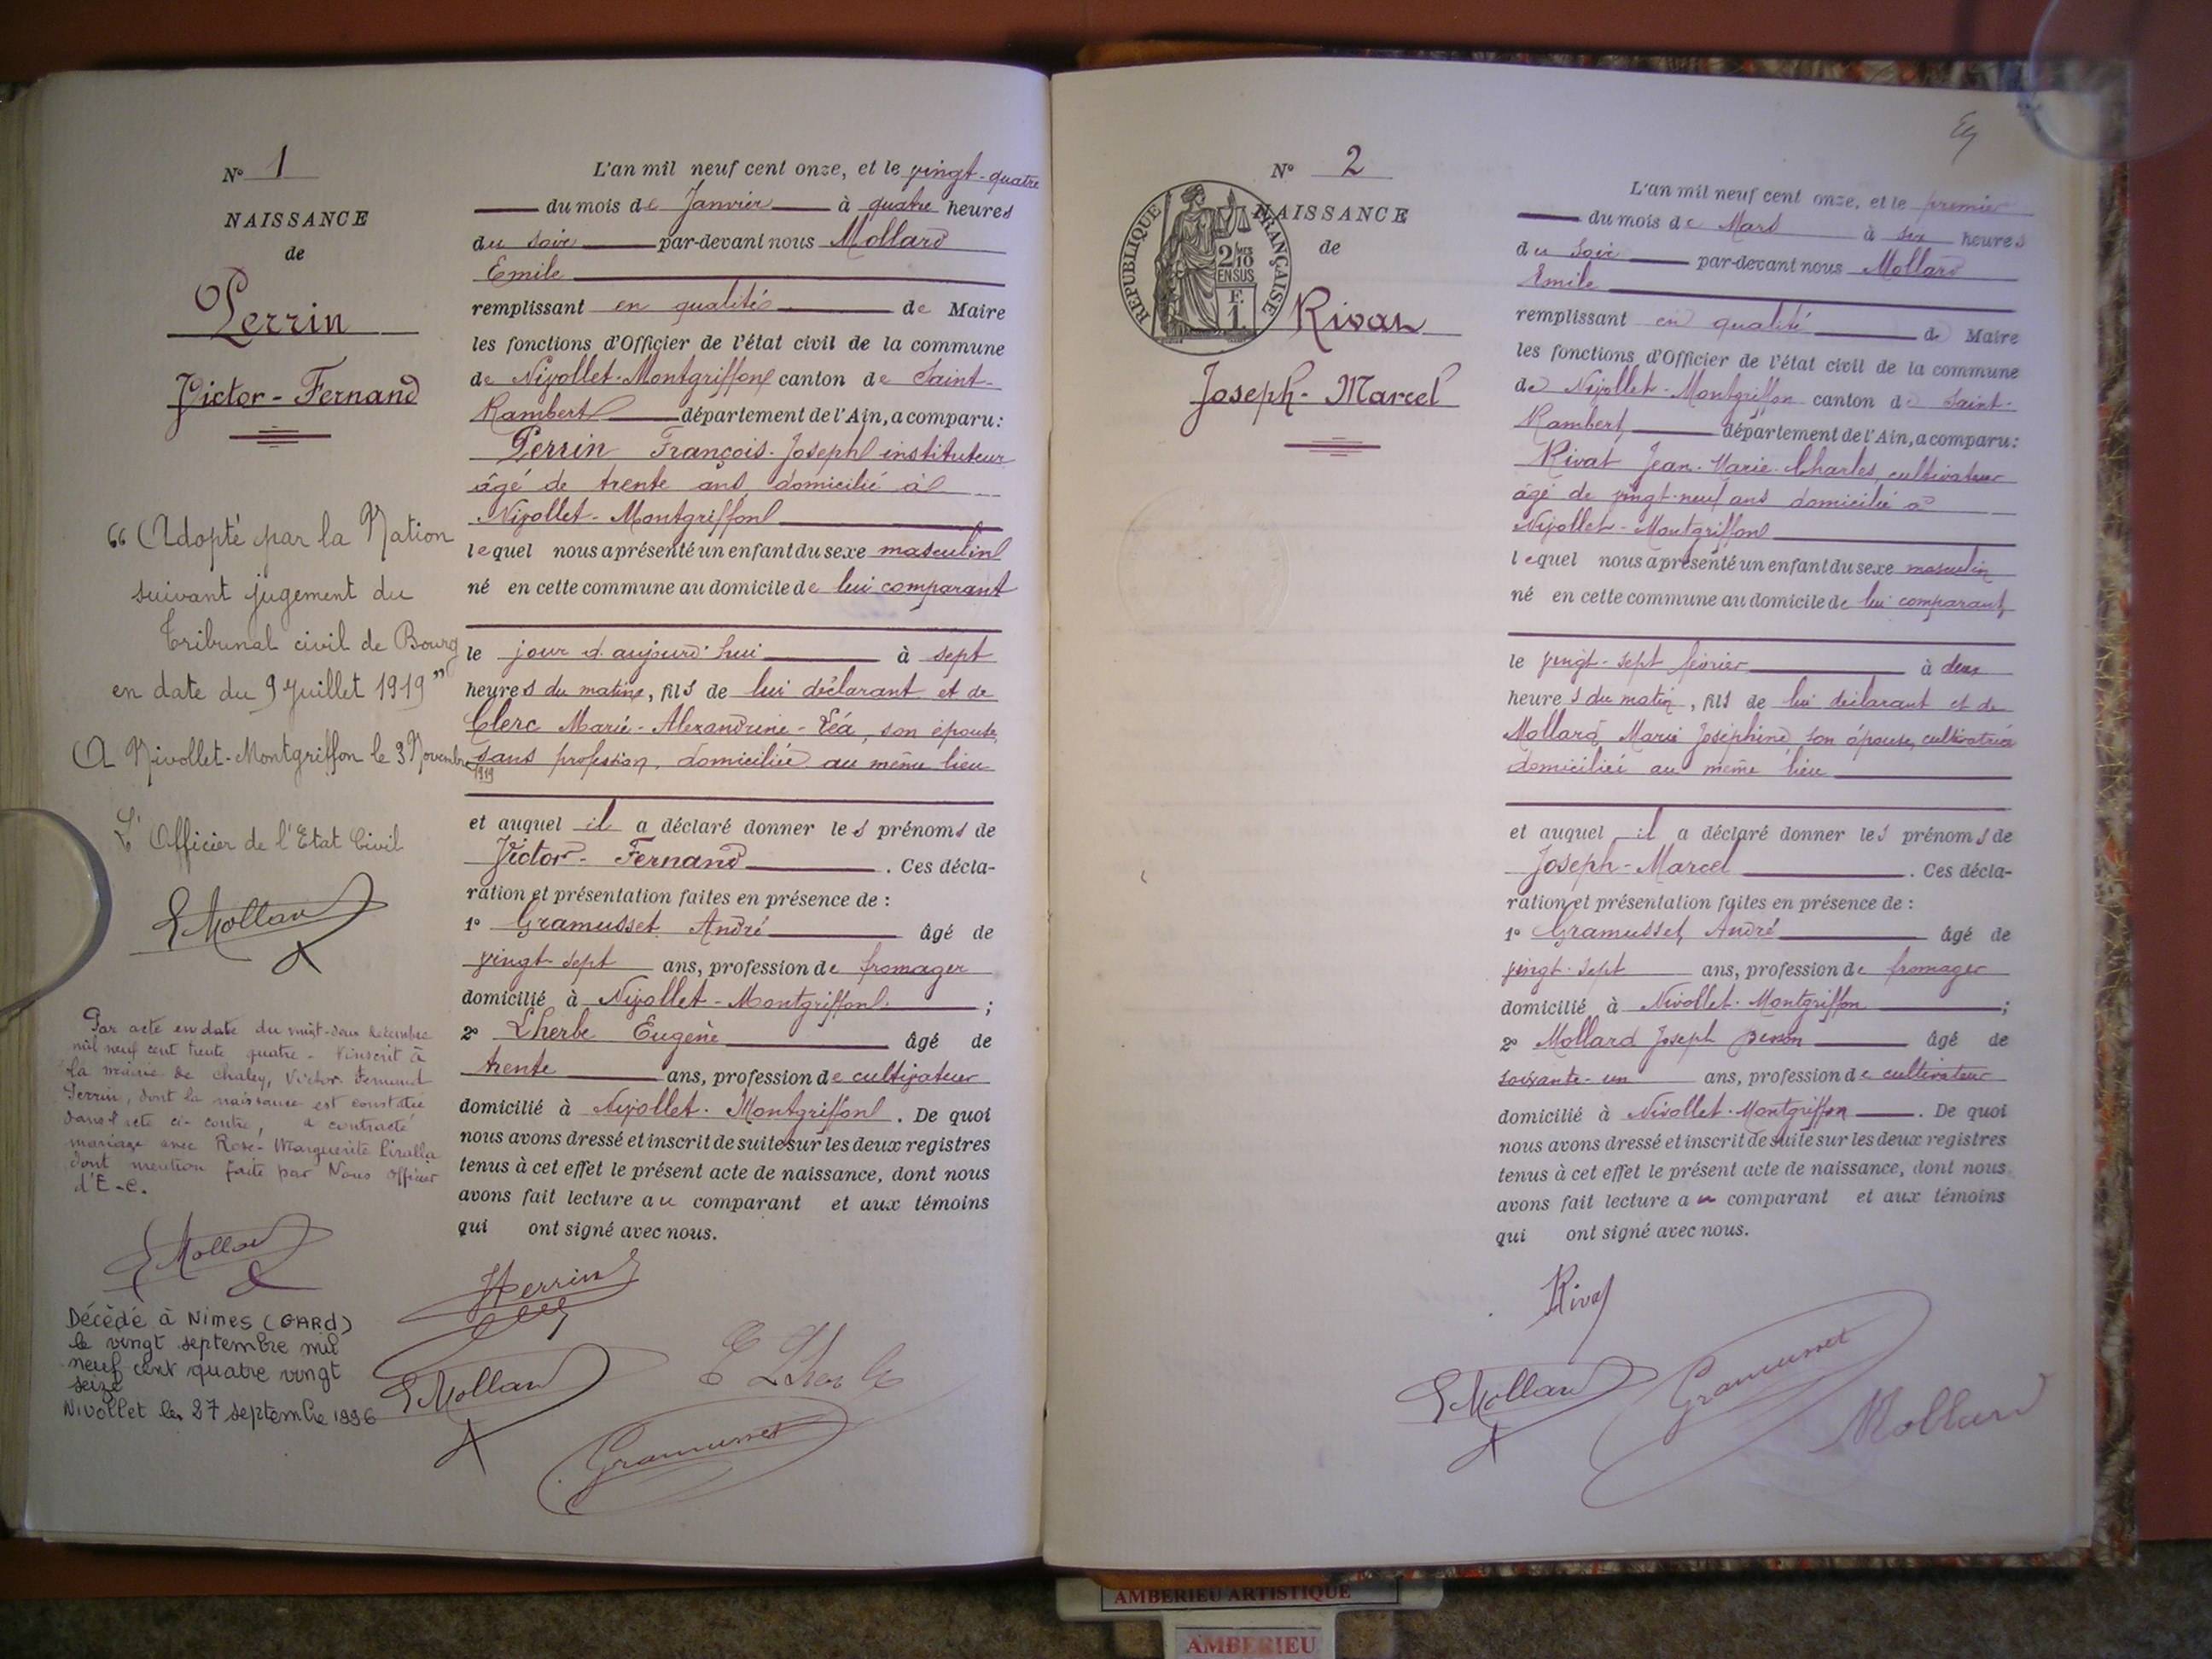 N° 1
NAISSANCE
de
Perrin
Victor-Fernand
"Adopté par la Nation
suivant jugement du
Tribunal civil de Bourg
en date du 9 Juillet 1919"
A Nivollet-Montgriffon le 3 Novembre
1919
L'Officier de l'Etat Civil
E Mollard
Par acte en date du vingt-deux décembre
mil neuf cent trente quatre - inscrit à
la mairie de Chaley, Victor Fernand
Perrin, dont la naissance est constatée
dans l'acte ci-contre, a contracté
mariage avec Rose-Marguerite
dont mention faite par Nous Officier
d'E-C.
E Mollard
Décédé à Nimes (GARd)
le vingt septembre mil
neuf cent quatre vingt
seize
Nivollet le 27 septembre 1996
L'an mil neuf cent onze, et le vingt-quatre
du mois de Janvier à quatre heures
du soir par-devant nous Mollard
Emile
remplissant en qualité de Maire
les fonctions d'Officier de l'état civil de la commune
de Nivollet-Montgriffon canton de Saint-
Rambert département de l'Ain, a comparu:
Perrin François-Joseph instituteur
âgé de trente ans domicilié à
Nivollet-Montgriffon
lequel nous a présenté un enfant du sexe masculin
né en cette commune au domicile de lui comparant
le jour d'aujourd'hui à sept
heures du matin, fils de lui déclarant et de
Clerc Marie-Alexandrine-Léa, son épouse,
sans profession, domiciliée au même lieu
et auquel il a déclaré donner les prénoms de
Victor-Fernand. Ces décla-
ration et présentation faites en présence de :
1° Gramusset André âgé de
vingt-sept ans, profession de fromager
domicilié à Nivollet-Montgriffon ;
2° Lherbe Eugène âgé de
trente ans, profession de cultivateur
domicilié à Nivollet-Montgriffon. De quoi
nous avons dressé et inscrit de suite sur les deux registres
tenus à cet effet le présent acte de naissance, dont nous
avons fait lecture au comparant et aux témoins
qui ont signé avec nous.
Perrin
E Mollard
E Lherbe
Gramusset
N° 2
REPUBLIQUE FRANÇAISE
2/10
EN SUS
F.
1.
NAISSANCE
de
Rivat
Joseph-Marcel
L'an mil neuf cent onze, et le premier
du mois de Mars à six heures
du soir par-devant nous Mollard
Emile
remplissant en qualité de Maire
les fonctions d'Officier de l'état civil de la commune
de Nivollet-Montgriffon canton de Saint-
Rambert, département de l'Ain, a comparu:
Rivat Jean-Marie-Charles, cultivateur
âgé de vingt-neuf ans domicilié à
Nivollet-Montgriffon
lequel nous a présenté un enfant du sexe masculin
né en cette commune au domicile de lui comparant
le vingt-sept février à deux
heures du matin, fils de lui déclarant et de
Mollard Marie Joséphine son épouse, cultivatrice
domiciliée au même lieu
et auquel il a déclaré donner les prénoms de
Joseph-Marcel. Ces décla-
ration et présentation faites en présence de :
1° Gramusset André âgé de
vingt-sept ans, profession de fromager
domicilié à Nivollet-Montgriffon ;
2° Mollard Joseph âgé de
soixante-un ans, profession de cultivateur
domicilié à Nivollet-Montgriffon. De quoi
nous avons dressé et inscrit de suite sur les deux registres
tenus à cet effet le présent acte de naissance, dont nous
avons fait lecture au comparant et aux témoins
qui ont signé avec nous.
Rivat
E Mollard
Gramusset
Mollard
AMBERIEU ARTISTIQUE
AMBERIEU